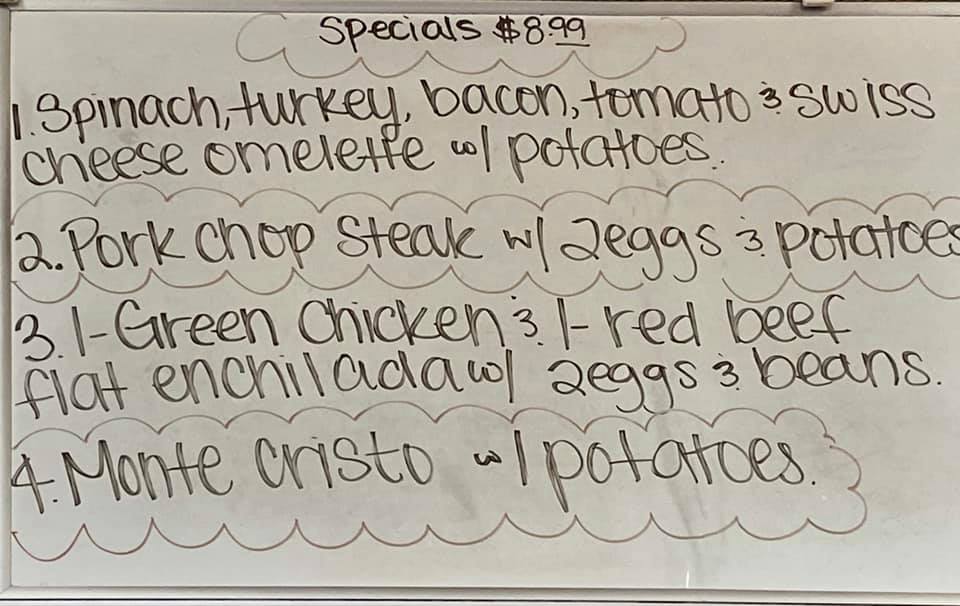 Specials $8.99
1. Spinach, turkey, bacon, tomato & swiss
cheese omelette w/ potatoes.
2. Pork Chop Steak w/ 2eggs & potatoes
3. 1-Green Chicken & 1-red beef
flat enchilada w/ 2eggs & beans.
4. Monte Cristo w/ potatoes.